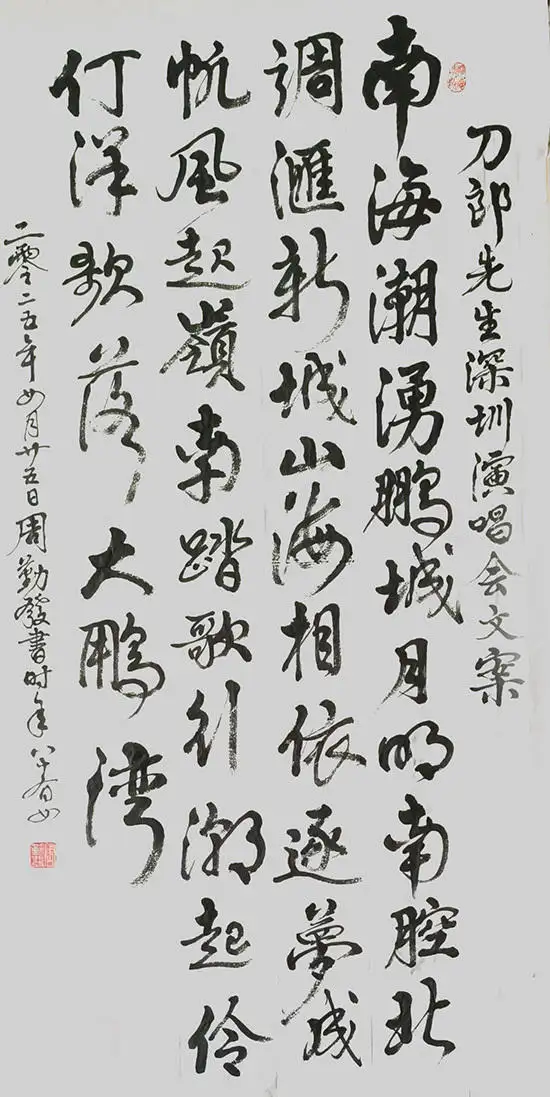 刀郎先生深圳演唱会文案
南海潮湧鵬城月明南腔北
調滙新城山海相依逐夢成
帆風起嶺南踏歌行潮起伶
仃洋歌落大鵬湾
二零二五年四月廿五日周勤發書时年八十有四